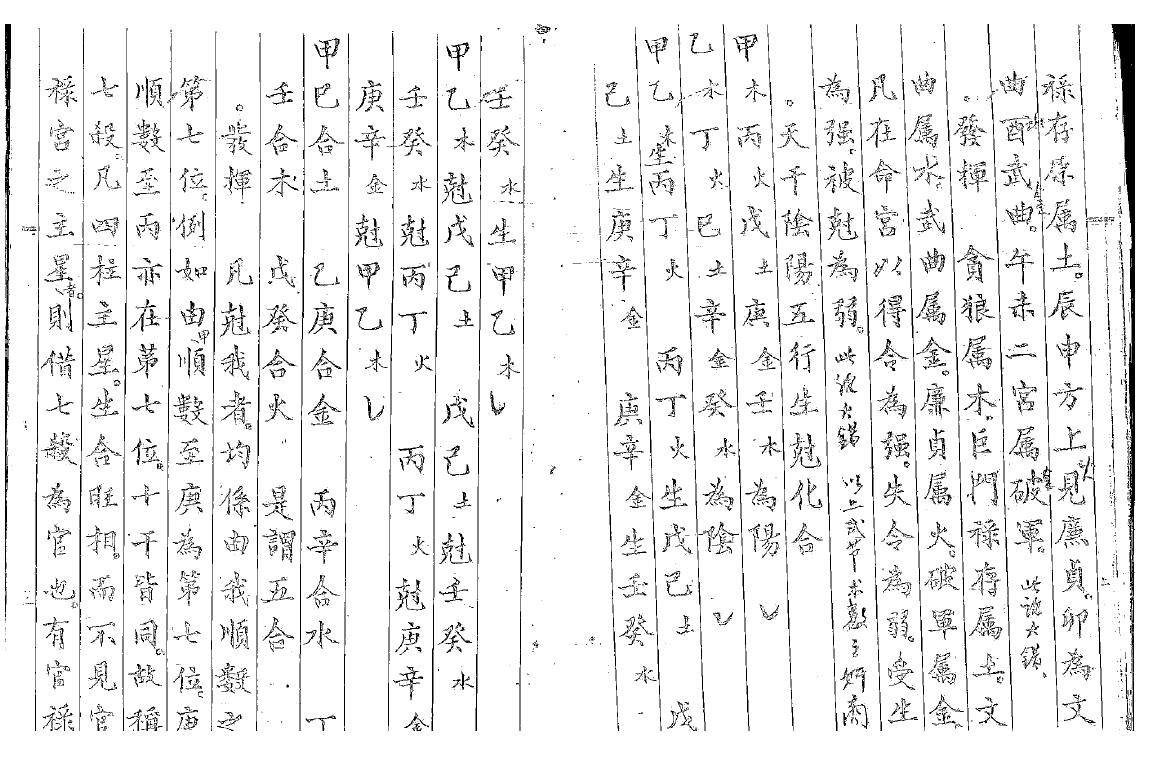 祿存原属土。辰申方上。見廉貞。卯為文
曲酉武曲。午未二宮属破軍。此說大錯、
。發揮 貪狼属木。巨門祿存属土。文
曲属水。武曲属金。廉貞属火。破軍属金
凡在命宮以得令為强。失令為弱。受生
為强。被尅為弱。此說大錯 以上弍节未敢 妍商
。天干陰陽五行生尅化合
甲木丙火戊土庚金壬水為陽
乙木丁火巳土辛金癸水為陰
甲乙木生丙丁火 丙丁火生戊己土 戊
己土生庚辛金 庚辛金生壬癸水
壬癸水生甲乙木
甲乙木尅戊己土 戊己土尅壬癸水
壬癸水尅丙丁火 丙丁火尅庚辛金
庚辛金尅甲乙木
甲巳合土 乙庚合金 丙辛合水 丁
壬合木 戊癸合火 是謂五合
。發揮 凡尅我者。均係由我順數之
第七位。例如由甲順數至庚為第七位。庚
順數至丙亦在第七位。十干皆同。故稱
七殺。凡四柱主星。生合旺相。而不見官
祿宮之主星者。則借七殺為官也。有官祿